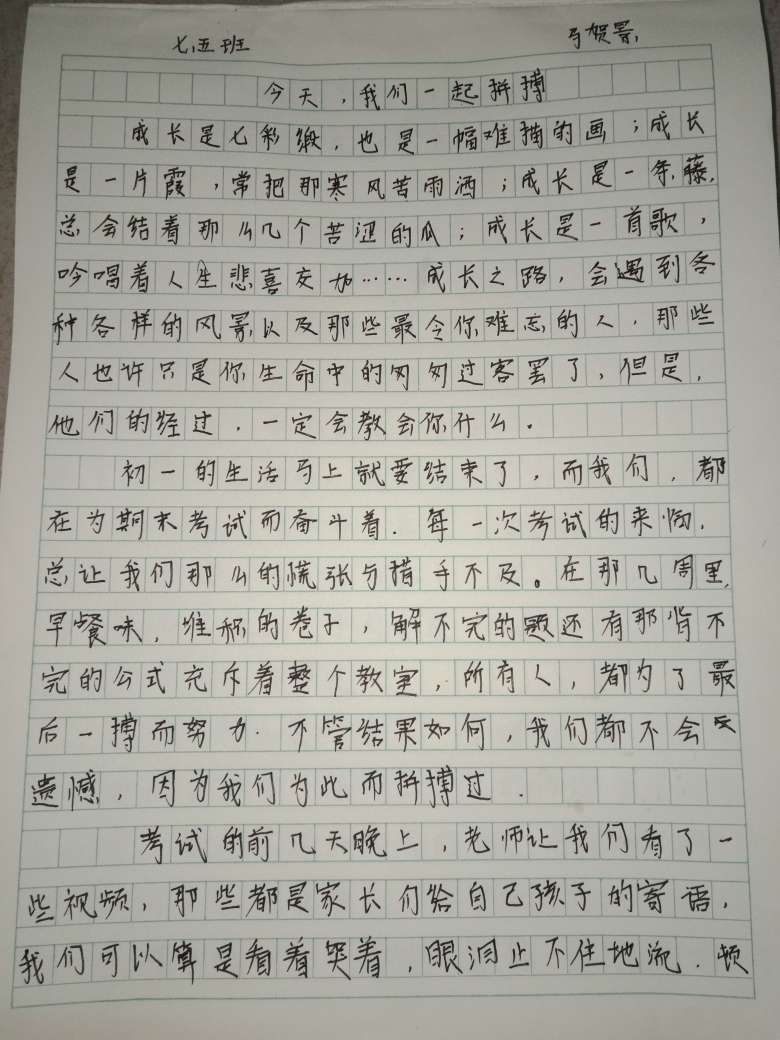 七五班 马贺景
今天，我们一起拼搏
成长是七彩缎，也是一幅难描的画；成长
是一片霞，常把那寒风苦雨洒；成长是一条藤，
总会结着那么几个苦涩的瓜；成长是一首歌，
吟唱着人生悲喜交加……成长之路，会遇到各
种各样的风景以及那些最令你难忘的人，那些
人也许只是你生命中的匆匆过客罢了，但是，
他们的经过，一定会教会你什么。
初一的生活马上就要结束了，而我们，都
在为期末考试而奋斗着。每一次考试的来临，
总让我们那么的慌张与措手不及。在那几周里，
早餐味，堆积的卷子，解不完的题还有那背不
完的公式充斥着整个教室，所有人，都为了最
后一搏而努力。不管结果如何，我们都不会
遗憾，因为我们为此而拼搏过。
考试的前几天晚上，老师让我们看了一
些视频，那些都是家长们给自己孩子的寄语，
我们可以算是看着哭着，眼泪止不住地流。顿